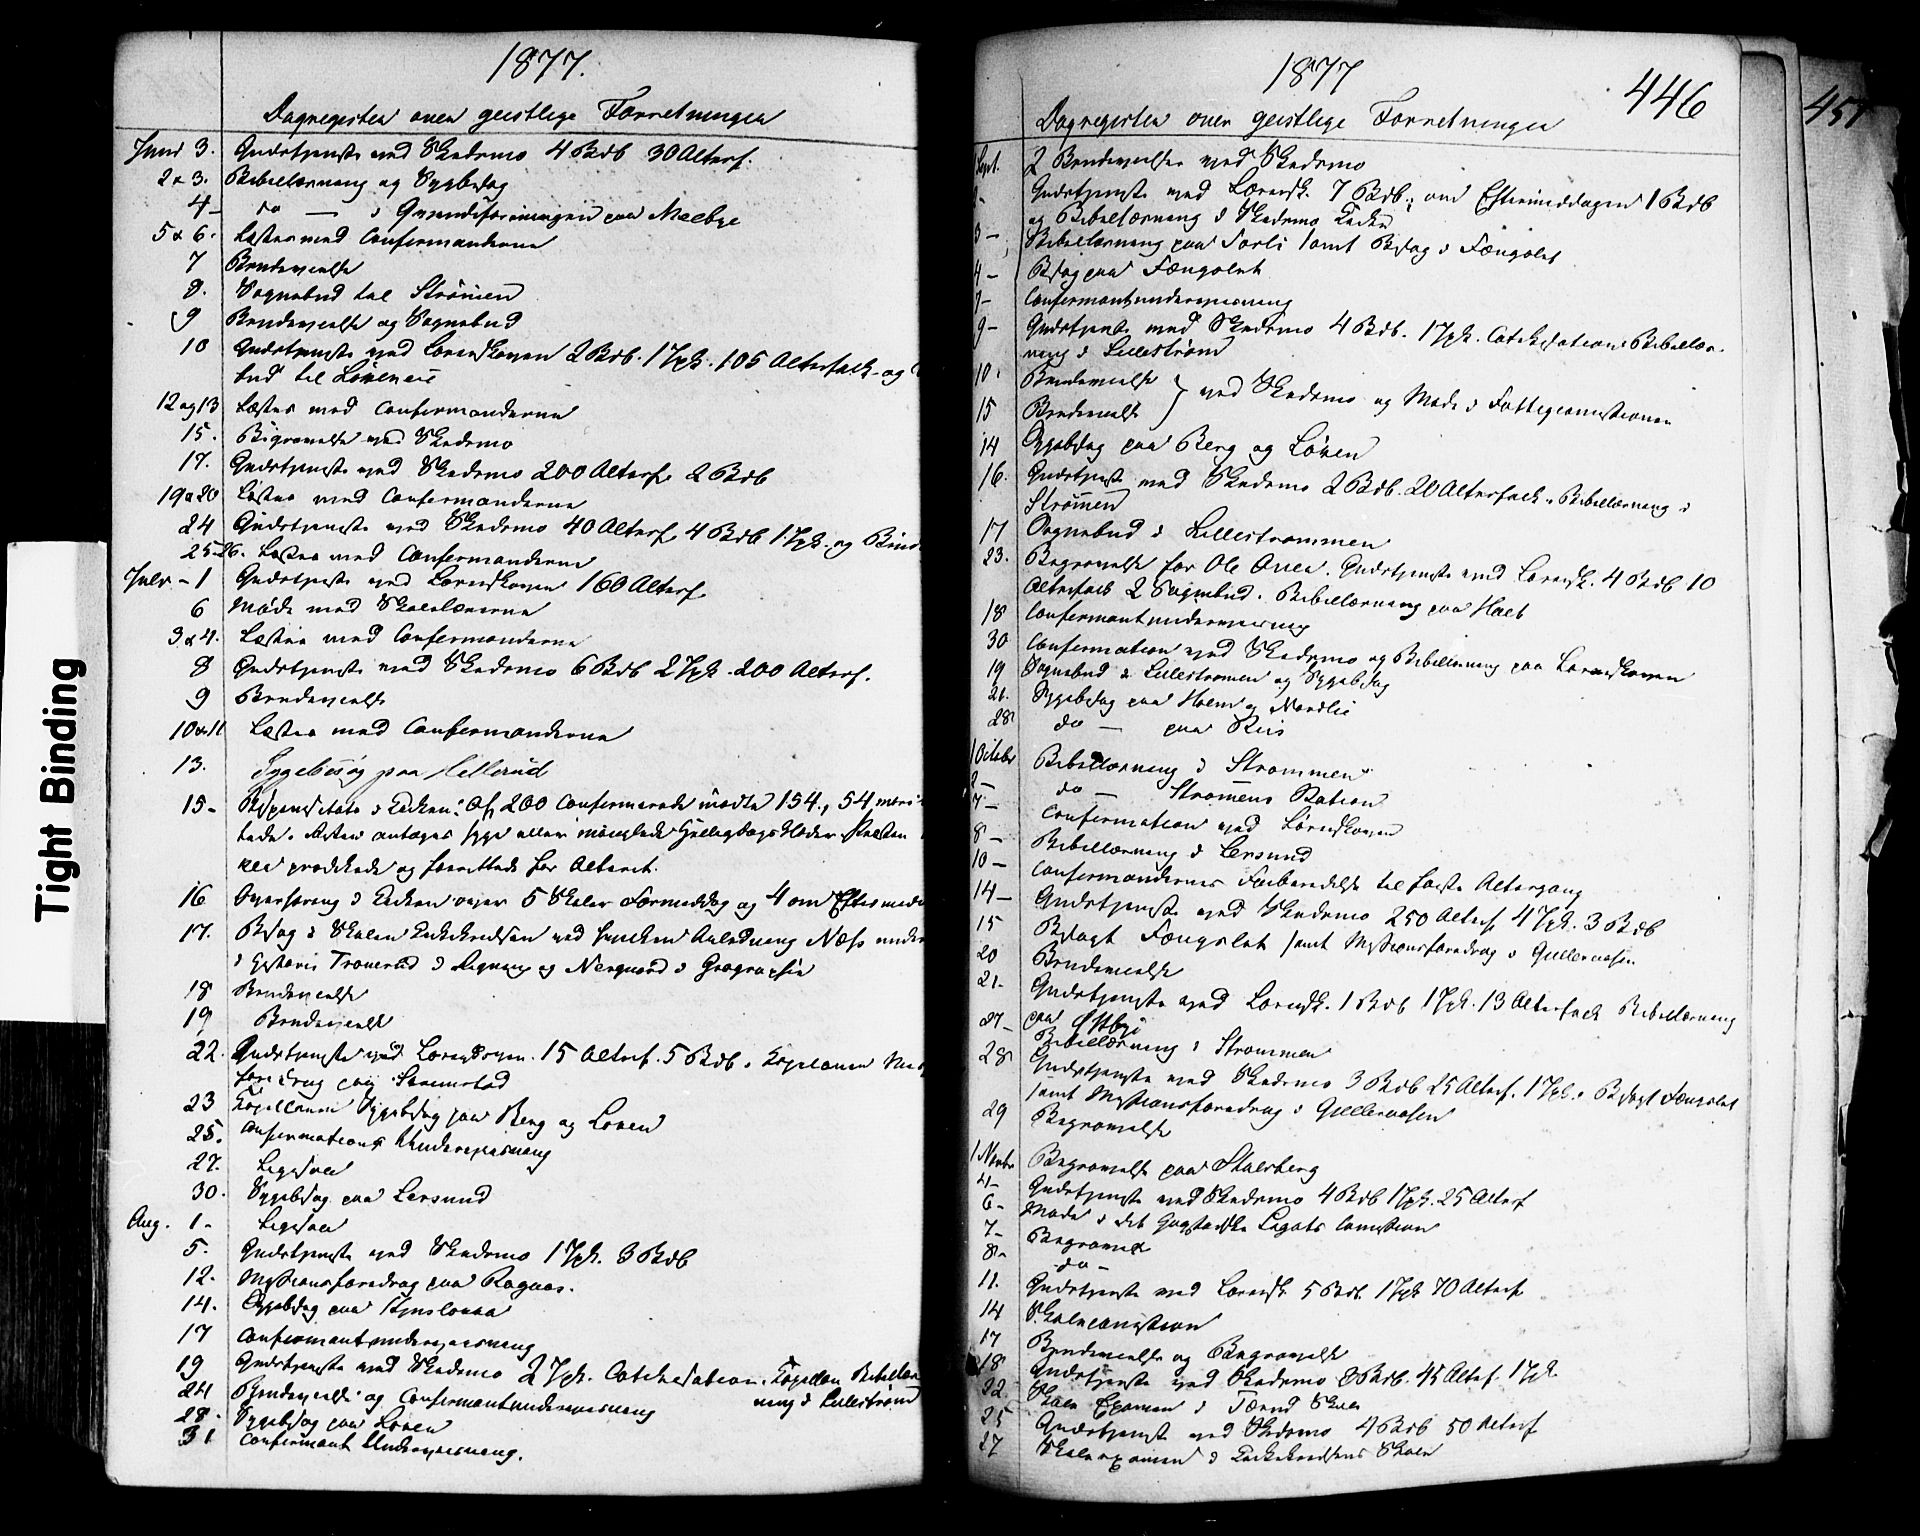 1877.
Dagregister over geistlige Forretninger
Juni 3. Gudstjeneste ved Skedsmo 4 Bdb 30 Alterf.
2 & 3. Bibellæsning og Sygebesøg
4 - do — i Gusendeforeningen paa Meelbye
5 & 6. Læsning med Confirmanderne
7 Brudevielse
8. Sognebud til Strømmen
9 Brudevielse og Sognebud
10 Gudstjeneste ved Lørenskogen 2 Bdb. 1 Ypk. 105 Alterfolk og
bud til Løvenvie
12 og 13 Læsning med Confirmanderne
15. Begravelse ved Skedsmo
17. Gudstjeneste ved Skedsmo 200 Alterf. 2 Bdb
19 & 20 Læsning med Confirmanderne
24 Gudstjeneste ved Skedsmo 40 Alterf 4 Bdb 1 Ypk. og
25-26. Læsning med Confirmanderne
July - 1 Gudstjeneste ved Lørenskogen 160 Alterf
6 Møde med Skolelærerne
3 & 4. Læsning med Confirmanderne
8 Gudstjeneste ved Skedsmo 6 Bdb 2 Ypk. 200 Alterf.
9 Brudevielse
10 & 11 Læsning med Confirmanderne
13. Sygebesøg paa Hellerud
15 - i Kirken: Af 200 Confirmerede mødte 154, 54
tede. syge eller manglede Helligdagsklæder
prædikede og forrettede for Alteret.
16 i Kirken over 5 Skoler Formiddag og 4 om Eftermid
17. Besøg i Skolen Næss
i Historie Tronerud i Regning og Nergaard i Geographie
18 Brudevielse
19 Brudevielse
22. Gudstjeneste ved Lørenskogen. 15 Alterf. 5 Bdb. Kapellanen
foredrag paa
23 Kapellanen Sygebesøg paa Berg og Løven
25. Confirmations Underviisning
27. Ligesaa
30. Sygebesøg paa Lersund
Aug. 1 - Ligesaa
5. Gudstjeneste ved Skedsmo 1 Ypk. 3 Bdb
12. Missionsforedrag paa Rognaas.
14. Sygebesøg paa
17 Confirmantunderviisning
19 Gudstjeneste ved Skedsmo 2 Ypk. Catechisation. Kapellan Bibellæs
24 Brudevielse og Confirmantunderviisning ning i Lillestrøm
28. Sygebesøg paa Løven
31 Confirmant Underviisning.
1877
446
457
Dagregister over geistlige Forretninger
Sept. 2 Brudevielser ved Skedsmo
Gudstjeneste ved Lørensk. 7 Bdb; om Eftermiddagen 1 Bdb
og Bibellæsning i Skedsmo Kirke
3 - Bibellæsning paa Farli samt Besøg i Fængslet
4 - Besøg paa Fængslet
7 - Confirmantunderviisning
9 - Gudstjeneste ved Skedsmo 4 Bdb. 1 Ypk. Catechisation Bibellæs-
ning i Lillestrøm
10. Brudevielse
ved Skedsmo og Møde i Fattigcomissionen
15 Brudevielse
14 Sygebesøg paa Berg og Løven
16. Gudstjeneste ved Skedsmo 2 Bdb. 20 Alterfolk. Bibellæsning i
Strømmen
17 Sognebud i Lillestrømmen
23. Begravelse for Ole Gudstjeneste ved Lørensk. 4 Bdb 10
Alterfolk 2 Sognebud. Bibellæsning paa Holt
18 Confirmantunderviisning
30 Confirmation ved Skedsmo og Bibellæsning paa Lørenskogen
19 Sognebud i Lillestrømmen og Sygebesøg
21. Sygebesøg paa Holm og Nordlie
28 do — paa Riis
1 October Bibellæsning i Strømmen
2 - do — Strømmens Station
7 - Confirmation ved Lørenskogen
8 - Bibellæsning i Lersund
10 - Confirmandernes Forberedelse til første Altergang
14 - Gudstjeneste ved Skedsmo 250 Alterf. 4 Ypk. 3 Bdb
15 Besøgt Fængslet samt Missionsforedrag i Gulleraasen
20 Brudevielse
21. Gudstjeneste ved Lørensk. 1 Bdb 1 Ypk. 13 Alterfolk Bibellæsning
paa Østbye
27 - Bibellæsning i Strømmen
28 Gudstjeneste ved Skedsmo 3 Bdb 25 Alterf. 1 Ypk. Besøgt Fængslet
samt Missionsforedrag i Gulleraasen
29 Begravelse
1 Novbr Begravelse paa Stalsberg
4 - Gudstjeneste ved Skedsmo 4 Bdb 1 Ypk. 25 Alterf
6 - Møde i det Legats Comission
7 - Begravelse
8 - do -
11. Gudstjeneste ved Lørensk 5 Bdb. 1 Ypk 70 Alterf.
14 Skolecomission
17 Brudevielse og Begravelse
18 Gudstjeneste ved Skedsmo 8 Bdb. 45 Alterf. 1 Ypk.
22 Skole Examen i Færud Skole
25 Gudstjeneste ved Skedsmo 4 Bdb 50 Alterf
27 Skoleexamen i Kirkekredsens Skole
Tight Binding